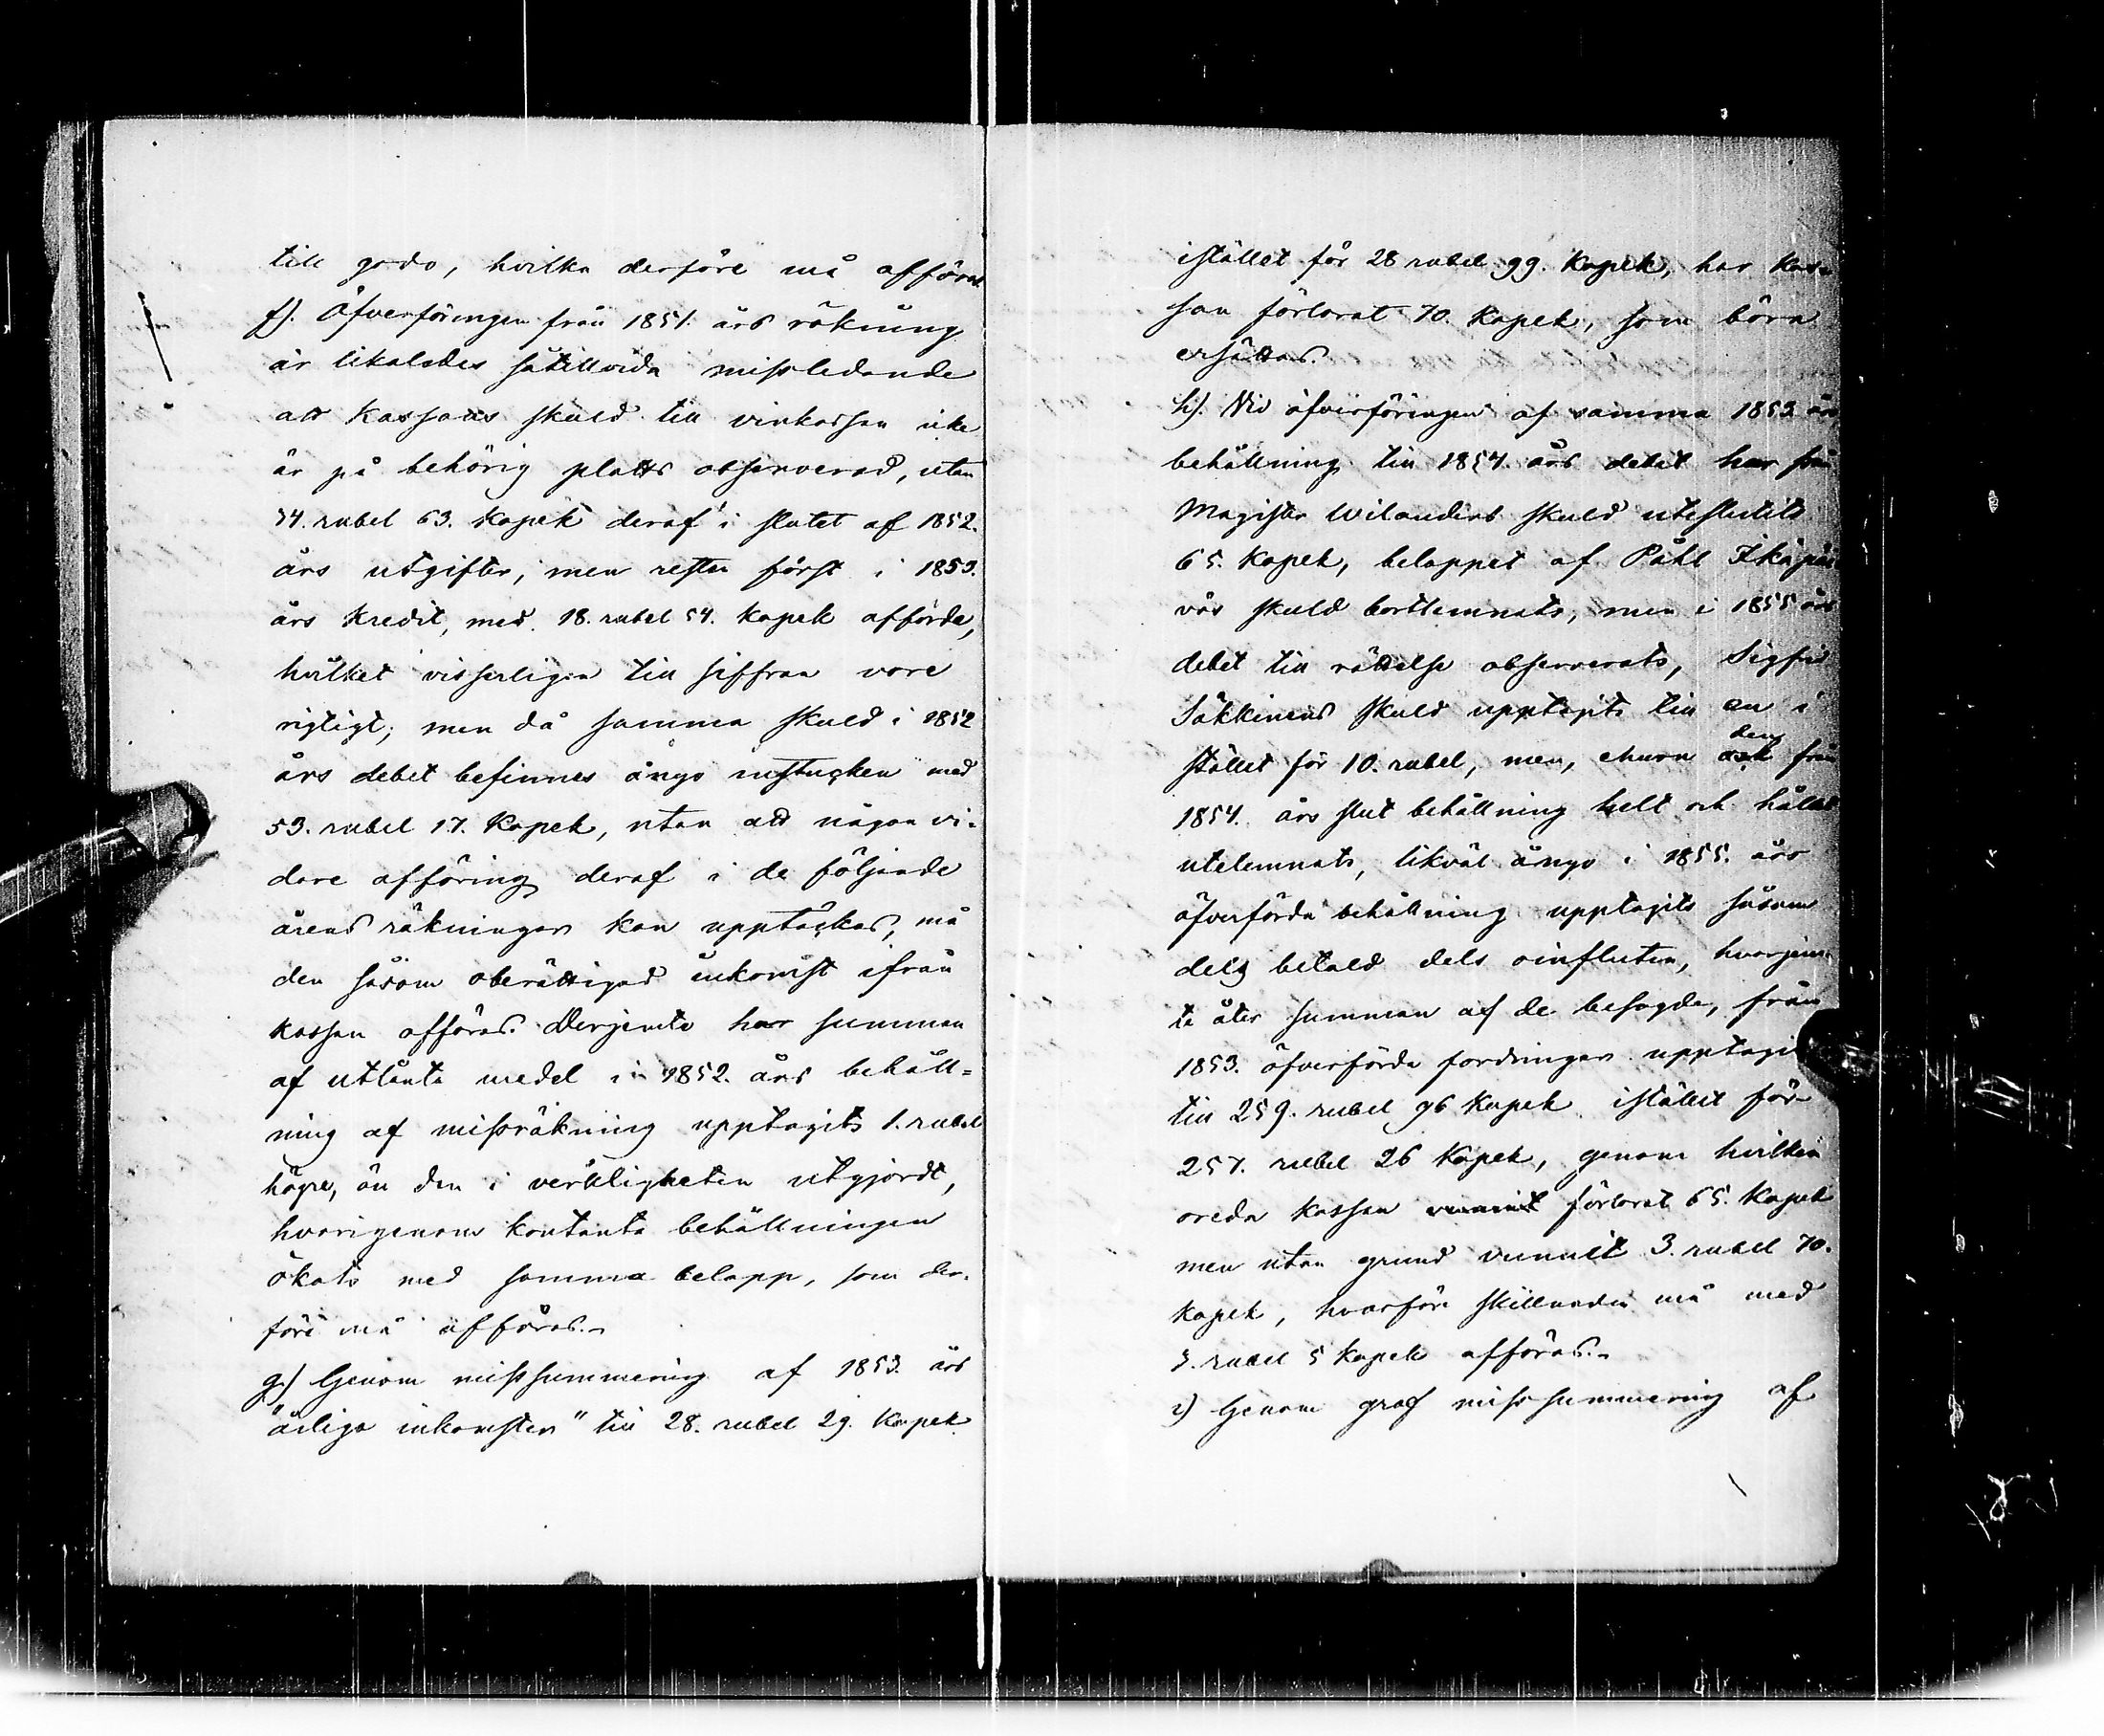 till godo, hvilka derföre må afföras.
f). Öfverföringen från 1851. års räkning
är likaledes såtillvida missledande
att kassans skuld till vinkassan icke
är på behörig platts observerad, utan
34. rubel 63. kopek deraf i slutet af 1852.
års utgifter, men resten först i 1853.
års kredit, med 18. rubel 54. kopek afförde,
hvilket visserligen till siffran vore
rigtigt; men då samma skuld i 1852
års debet befinnes ånyo instucken med
53. rubel 17. kopek, utan att någon vi-
dare afföring deraf i de följande
årens räkningar kan upptäckas, må
den såsom oberättigad inkomst ifrån
kassan afföras. Derjemte har summan
af utlånta medel i 1852. års behåll=
ning af missräkning upptagits 1. rubel
högre, än den i verkligheten utgjordt,
hvarigenom kontanta behållningen
ökats med samma belopp, som der-
före må afföras.-
g.) Genom missummering af 1853. års
"årliga inkomsten" till 28. rubel 29. kopek
istället för 28 rubel 99. kopek, har kas-
san förlorat 70. kopek, som böra
ersättas.
h). Vid öfverföringen af samma 1853 års
behållning till 1854. års debet har från
Magister Wilanders skuld uteslutits
65. kopek, beloppet af Påhl Ikäpä-
vås skuld bortlemnats, men i 1855 års
debet till rättelse observerats, Sigfrid
Säkkinens skuld upptagits till en i
den
stället för 10. rubel, men, ehuru ock från
1854. års slut behållning helt och hållet
utelemnats, likväl ånyo i 1855. års
öfverförda behållning upptagits såsom
dels betald dels oinfluten, hvarjem-
te åter summan af de besagde, från
1853. öfverförda fordringar upptagits
till 259. rubel 96 kopek istället för
257. rubel 26 kopek, genom hvilken
oreda kassan vunnit förlorat 65. kopek
men utan grund vunnit 3. rubel 70.
kopek, hvarför skillnaden må med
3. rubel 5 kopek afföras.-
i) Genom graf missummering af